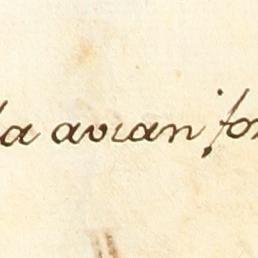 la avian for